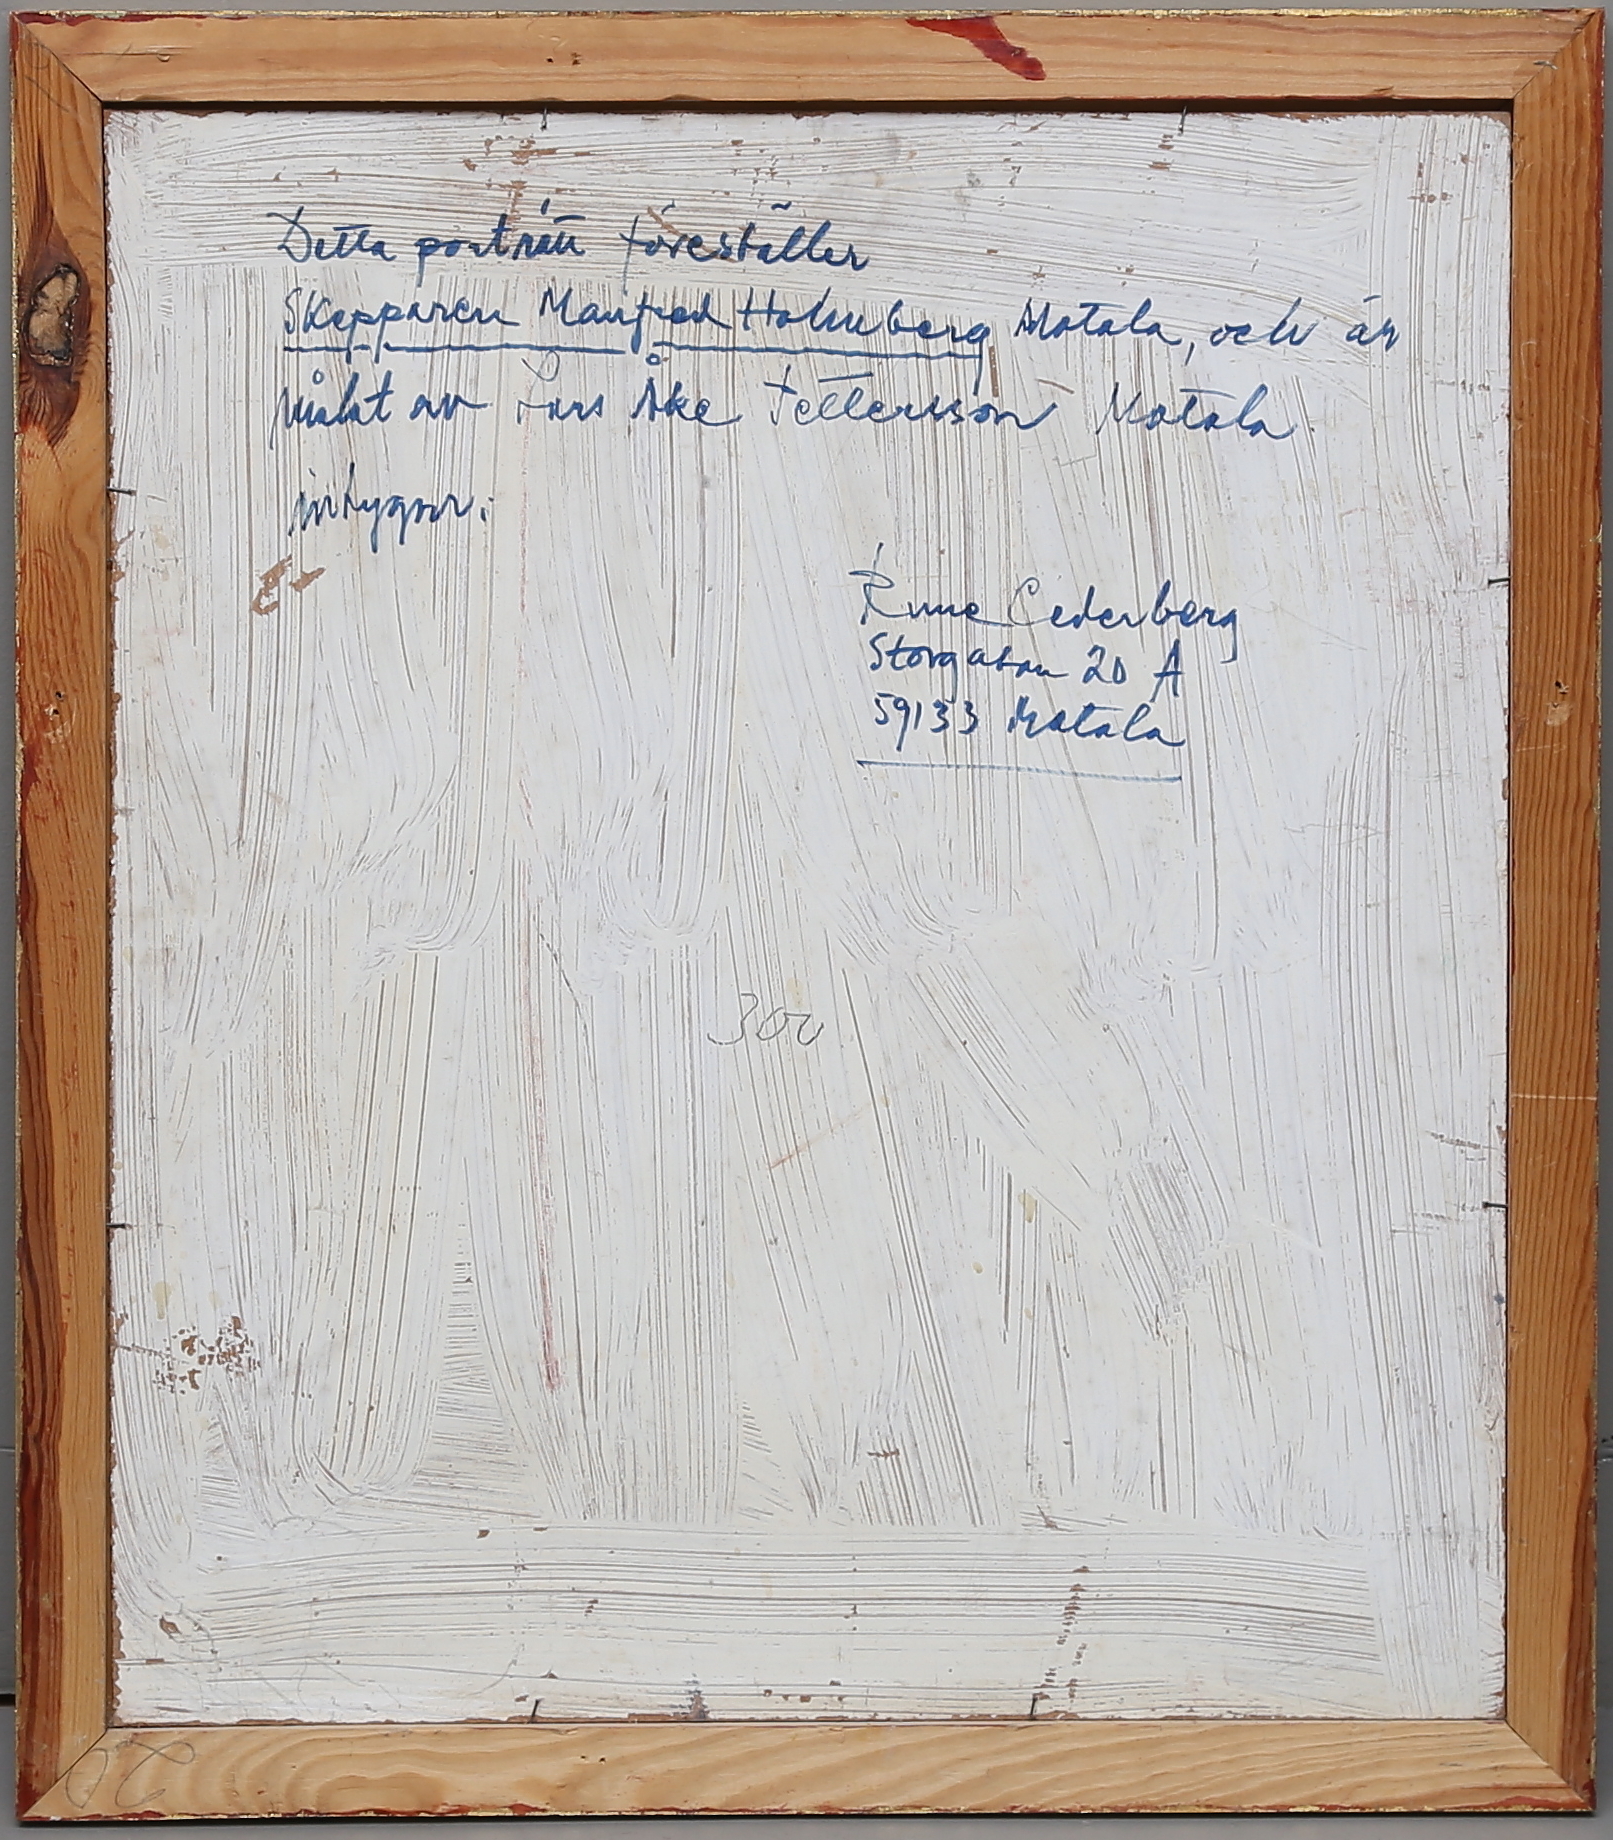 Detta porträtt föreställer
Skepparen Manfred Holmberg Motala, och är
målat av Lars Åke Pettersson Motala
intygar:
Rune Cederberg
Storgatan 20 A
59133 Motala
300
20